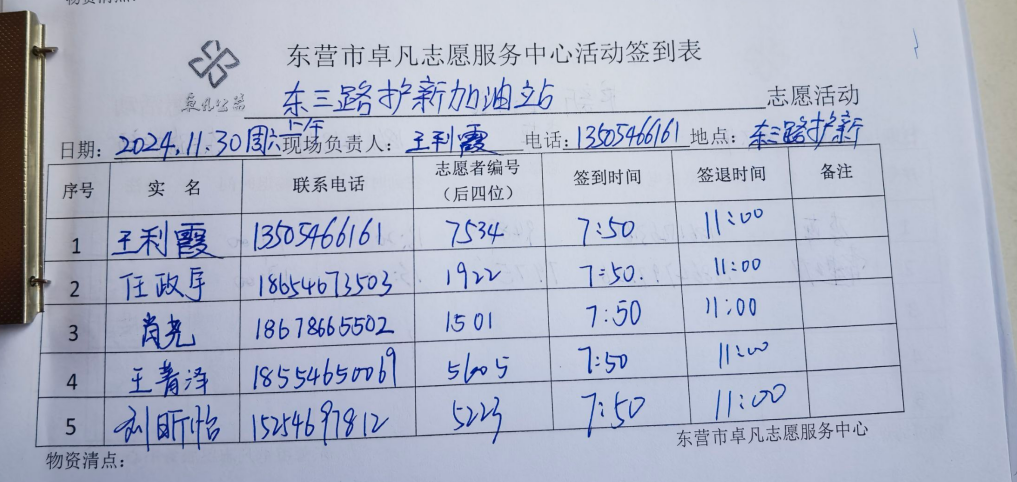 物资清点:
东营市卓凡志愿服务中心活动签到表
卓凡公益
东三路护新加油站 志愿活动
日期: 2024.11.30周六上午 现场负责人: 王利霞 电话: 13505466161 地点: 东三路护新
序号 实 名 联系电话 志愿者编号(后四位) 签到时间 签退时间 备注
1 王利霞 13505466161 7534 7:50 11:00
2 任政 18654673503 1922 7:50. 11:00
3 肖尧 18678665502 1501 7:50 11:00
4 王菁泽 18554650069 5605 7:50 11:00
5 刘昕怡 15254697812 5223 7:50 11:00
物资清点:
东营市卓凡志愿服务中心